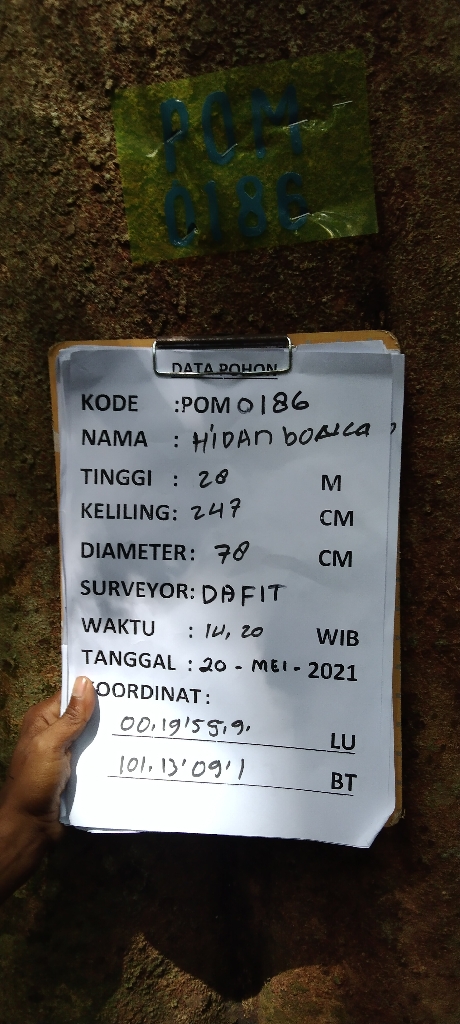 POM
0186
DATA POHON
KODE :POM 0186
NAMA : HIDAN
TINGGI : 28 M
KELILING: 247 CM
DIAMETER: 78 CM
SURVEYOR: DAFIT
WAKTU : 14,20 WIB
TANGGAL : 20 - MEI - 2021
KOORDINAT:
00.19'55,9. LU
101.13'09'1 BT